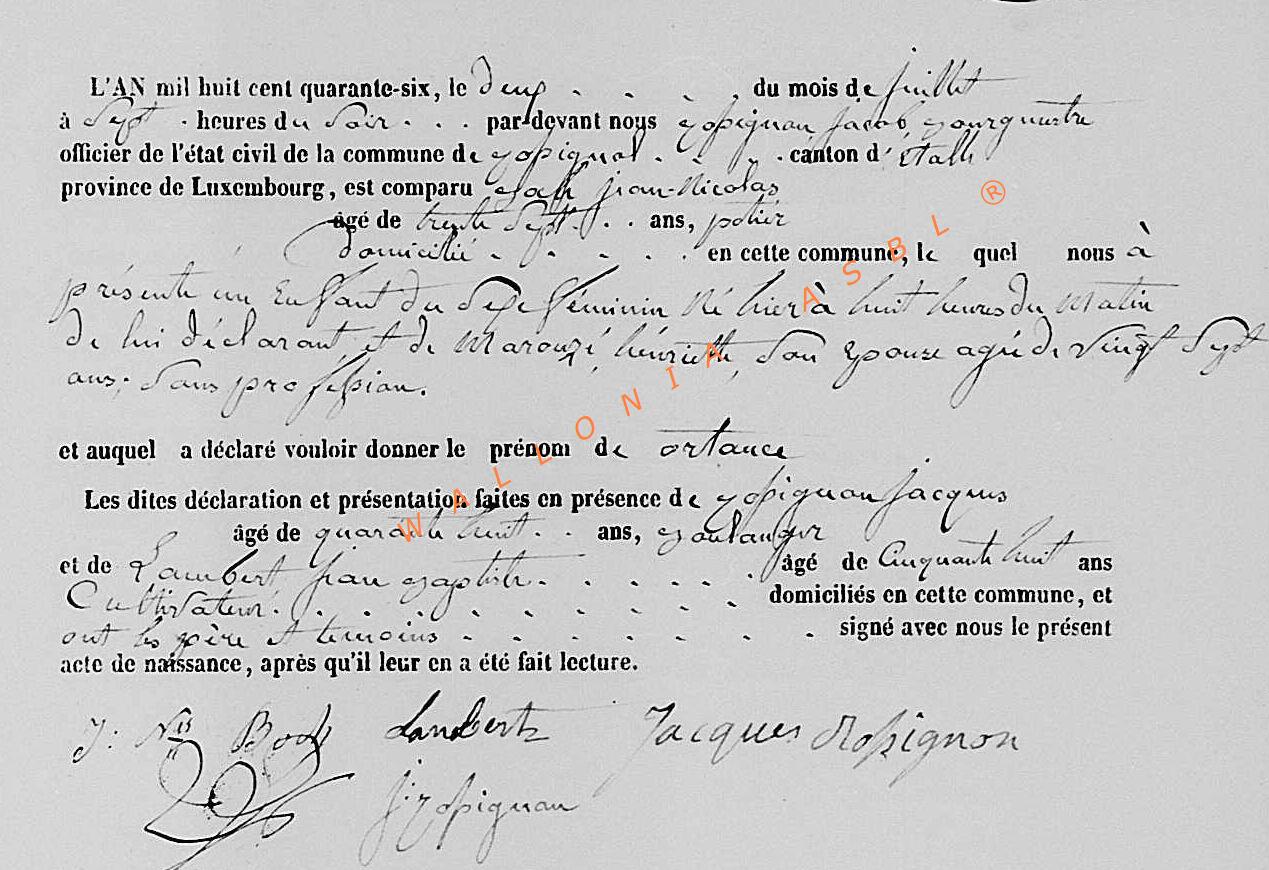 L'AN mil huit cent quarante-six, le deux . . . . du mois de juillet
à Sept . heures du Soir . . . par-devant nous Rossignon Jacob, Bourgmestre
officier de l'état civil de la commune de Rossignol . . . . canton d'Etalle
province de Luxembourg, est comparu Bock Jean-Nicolas
âgé de trente Sept . . . ans, potier
domicilié . . . . . . en cette commune, le quel nous à
présenté un Enfant du Sexe féminin Né hier à huit heures du Matin
de lui déclarant et de Marouzé, hénriette, Son Epouse agée de vingt Sept
ans, Sans profession.
et auquel a déclaré vouloir donner le prénom de ortance
Les dites déclaration et présentation faites en présence de Rossignon Jacques
âgé de quarante huit . . ans, Boulanger
et de Lambert Jean Baptiste . . . . . . âgé de Cinquante huit ans
Cultivateur . . . . . . . . . domiciliés en cette commune, et
ont les père et temoins . . . . . . . signé avec nous le présent
acte de naissance, après qu'il leur en a été fait lecture.
J: Nis Bock Lambert Jacques Rossignon
J. Rossignon
WALLONIA ASBL ®